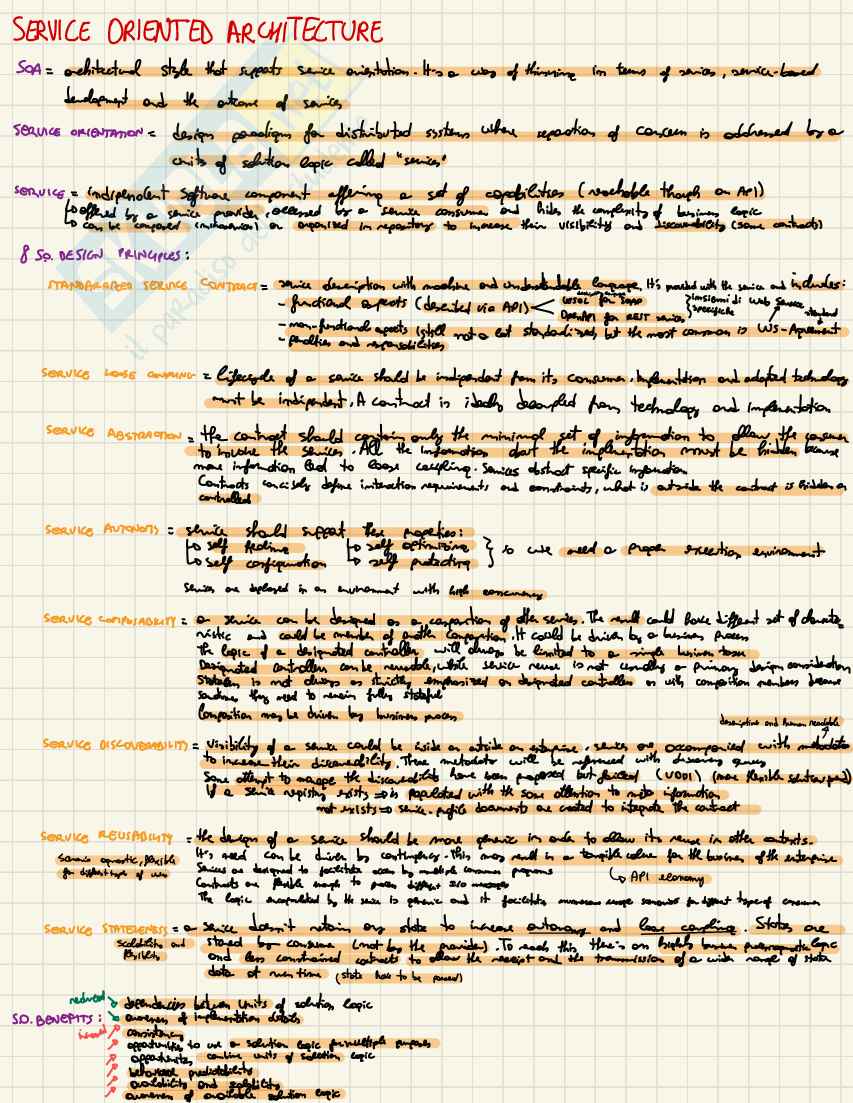 SERVICE ORIENTED ARCHITECTURE
SOA = architectural style that supports service orientation. It's a way of thinking in terms of services, service-based
development and the outcome of services
SERVICE ORIENTATION = design paradigm for distributed systems where separation of concern is addressed by a
units of solution logic called "services"
SERVICE = indipendent software component offering a set of capabilities (reachable though an API)
↳ offered by a service provider, accessed by a service consumer and hides the complexity of business logic
↳ can be composed (mechanism) or organized in repository to increase their visibility and discoverability (some contracts)
8 S.O. DESIGN PRINCIPLES:
STANDARIZED SERVICE CONTRACT = service description with machine and understandable language. It's provided with the service and includes:
- functional aspects (described via API) < WSDL for SOAP
OpenAPI for REST services } insiemi di web service specifiche
- non-functional aspects (still not a lot standardized, but the most common is WS-Agreement
standard
- penalties and responsibilities
SERVICE LOOSE COUPLING = lifecycle of a service should be indipendent from its consumer. Implementation and adopted technology
must be indipendent. A contract is ideally decoupled from technology and implementation
SERVICE ABSTRACTION = the contract should contain only the minimal set of information to allow the consumer
to invoke the services. All the information about the implementation must be hidden because
more information lead to loose coupling. Services abstract specific information
Contracts concisely define interaction requirements and constraints, what is outside the contract is hidden or
controlled
SERVICE AUTONOMY = service should support these properties:
↳ self healing ↳ self optimizing } so we need a proper execution environment
↳ self configuration ↳ self protecting
Services are deployed in an environment with high concurrency
SERVICE COMPOSABILITY = a service can be designed as a composition of other services. The result could have different set of characte
ristic and could be member of another composition. It could be driven by a business process
The logic of a designated controller will always be limited to a single business task
Designated controllers can be reusable, while service reuse is not usually a primary design consideration
Stateless is not always as strictly emphasized on designated controllers or with composition members because
sometimes they need to remain fully stateful
Composition may be driven by business process
descriptive and human readable
SERVICE DISCOVERABILITY = visibility of a service could be inside or outside an enterprise. services are accompanied with metadata
to increase their discoverability. These metadata will be referenced with discovery query
Some attempt to manage the discoverability have been proposed but failed (UDDI) (more flexible solution)
If a service registry exists => is populated with the same attention to meta information
not exists => service-profile documents are created to integrate the contract
SERVICE REUSABILITY = the design of a service should be more generic in order to allow its reuse in other contexts.
service agnostic, flexible
for different type of uses
It's need can be driven by contingency. This may result in a tangible value for the business of the enterprise
↳ API economy
Services are designed to facilitate access by multiple consumer programs
Contracts are flexible enough to process different I/O messages
The logic encapsulated by the service is generic and it facilitates numerous usage scenarios for different types of consumer
SERVICE STATELESNESS = a service doesn't retain any state to increase autonomy and loose coupling. States are
scalability and
flexibility
stored by consumer (not by the provider). To reach this, there's an highly business process agnostic logic
and less constrained contracts to allow the receipt and the transmission of a wide range of state
data at run time (state have to be passed)
S.O. BENEFITS:
reduced ↘ dependencies between units of solution logic
↘ awareness of implementation details
increased ↗ consistency
↗ opportunities to use a solution logic for multiple purposes
↗ opportunities combine units of solution logic
↗ behavioral predictability
↗ availability and scalability
↗ awareness of available solution logic
il paradiso